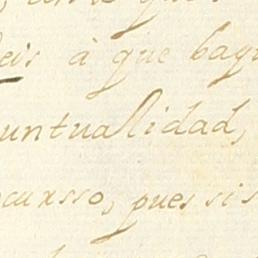 eis à que bay
untualidad,
ocursso, pues si s